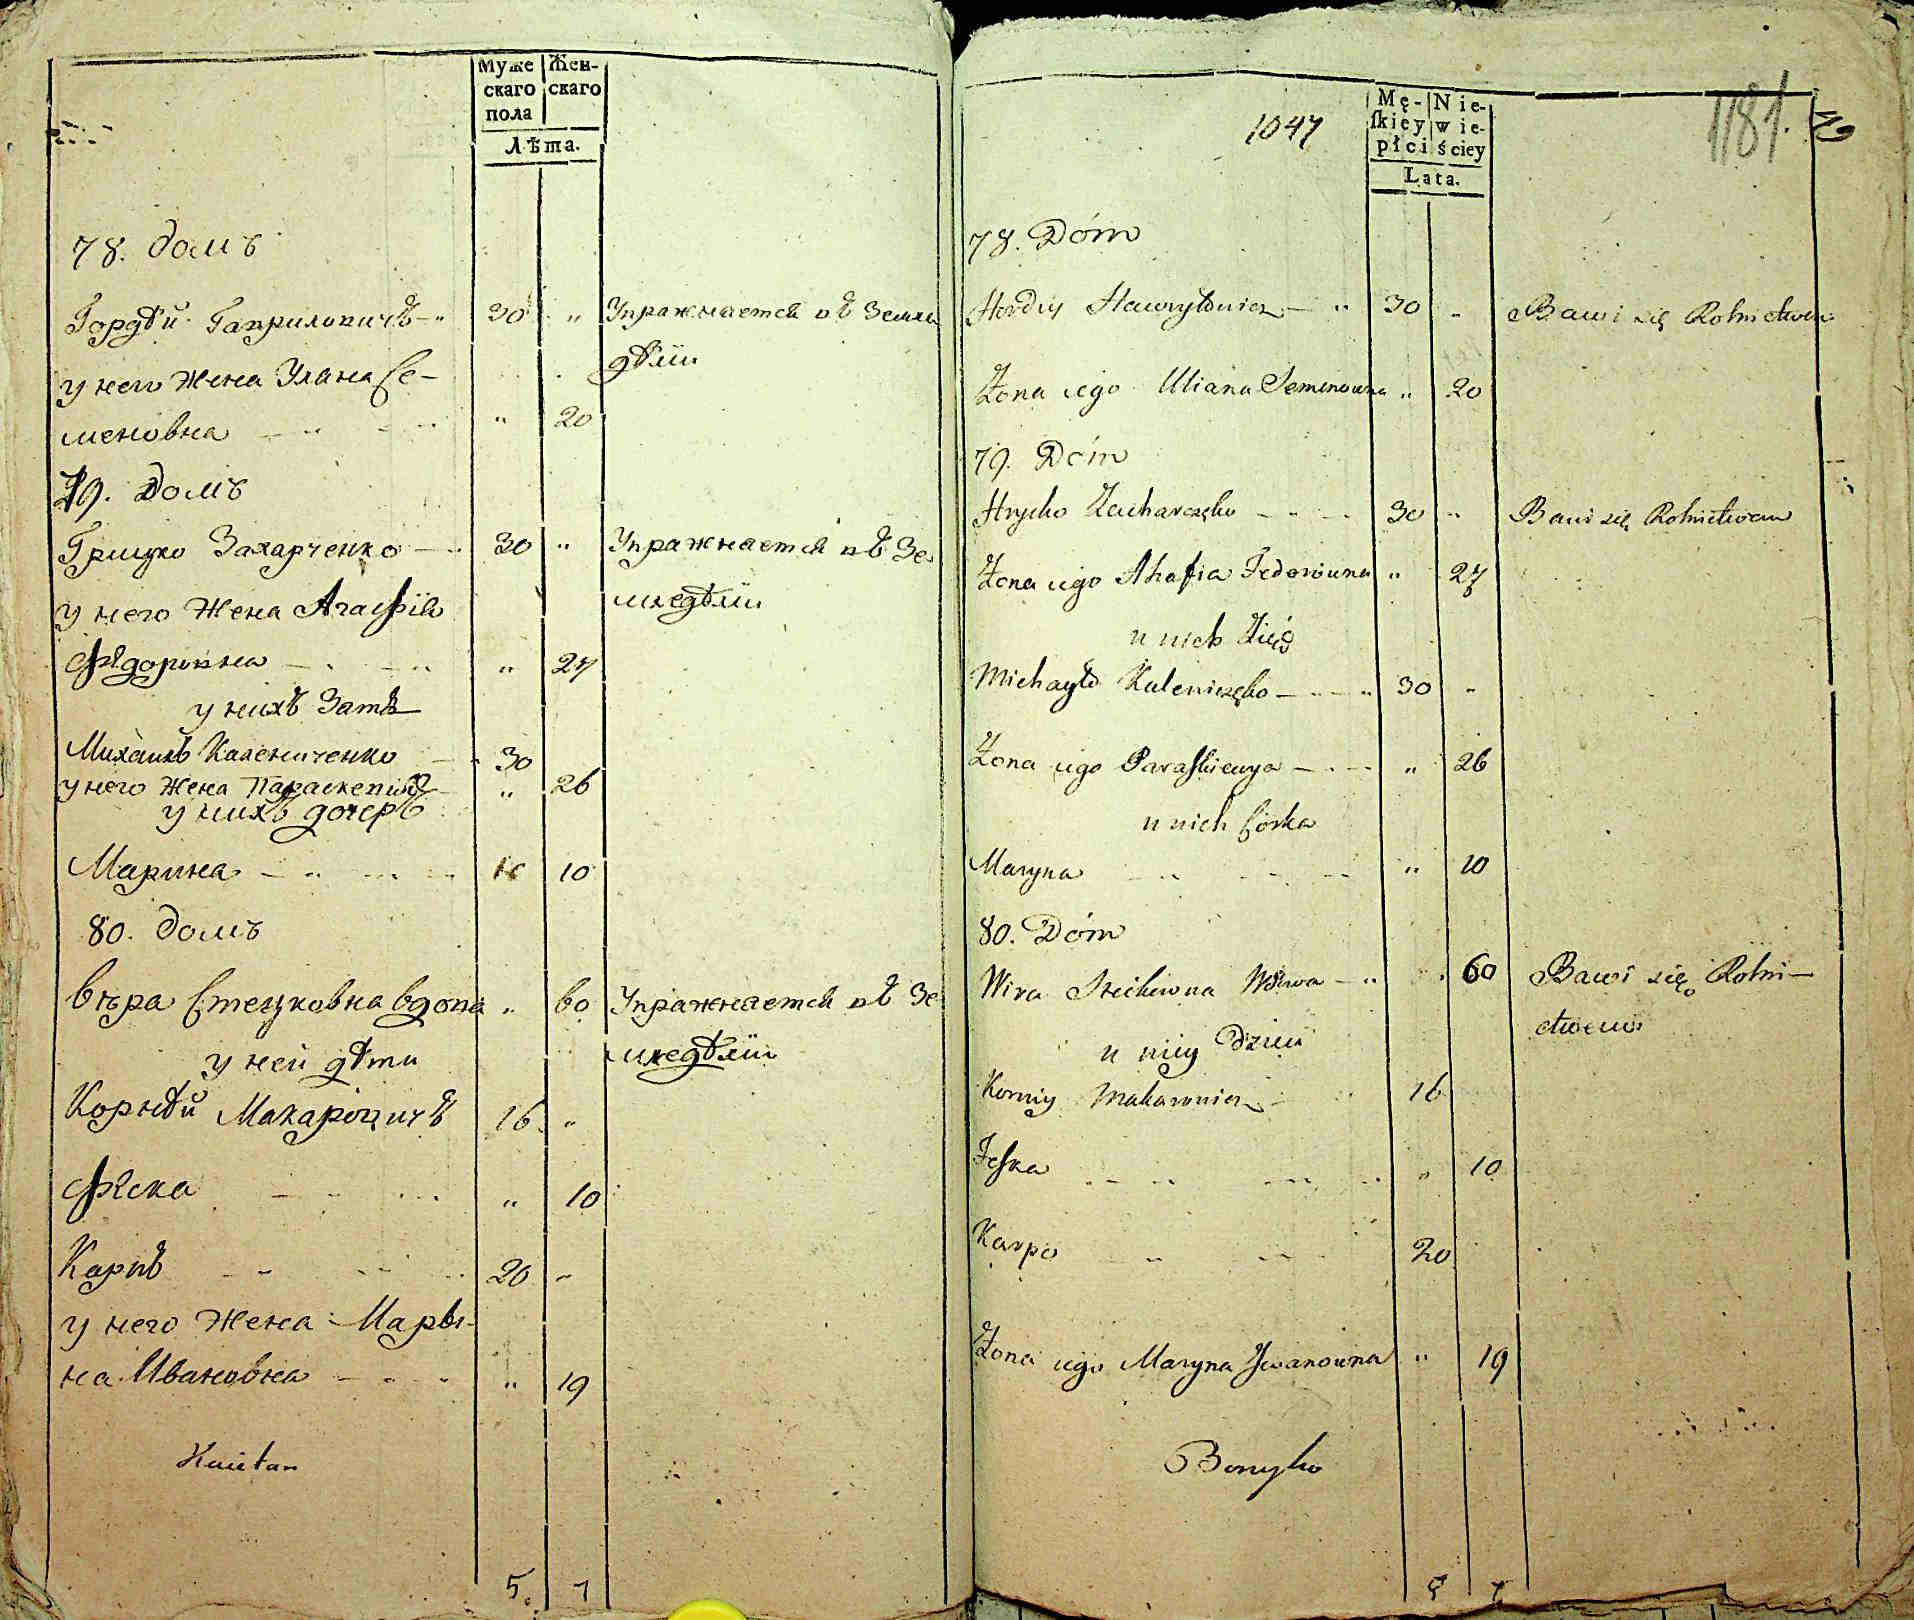 Муже Жен-
скаго скаго
пола
Лѣта.
78. домъ
Гордѣй Гавриловичъ 30 " Упражняется въ Земли
дѣлiи
у него Жена Уляна Се-
меновна " 20
79. домъ
Грицко Захарченко 30 " Упражняется въ Зе
мледѣлiи
у него Жена Агафiя
Федоровна " 27
у нихъ Зать
Михаилъ Калениченко 30
у него Жена Параскевiя " 26
у нихъ дочерь
Марина " 10
80. домъ
Вѣра Стецковна вдова " 60 Упражняется въ Зе
мледѣлiи
у ней дѣти
Корнѣй Макаровичъ 16 "
Феска " 10
Карпъ 20 "
у него Жена Мары-
на Ивановна " 19
Kwietan
5. 7
1047
1181.
Mę- Nie-
ſkiey wie-
płci ściey
Lata.
78. Dóm
Hordiy Hawryłowicz 30 " Bawi się Rolnictwem
Żona iego Uliana Semenowna " 20
79. Dóm
Hrycko Zacharczęko 30 " Bawi się Rolnictwem
Żona iego Ahafia Fedorowna " 27
u nich Zięć
Michayło Kaleniczęko 30 "
Żona iego Paraskiewya " 26
u nich Córka
Maryna " 10
80. Dóm
Wira Stećkiwna Wdowa " 60 Bawi się Rolni-
ctwem
u niey Dzieci
Korniy Makarowicz 16
Feſka " 10
Karpo 20
Żona iego Maryna Iwanowna " 19
5 7